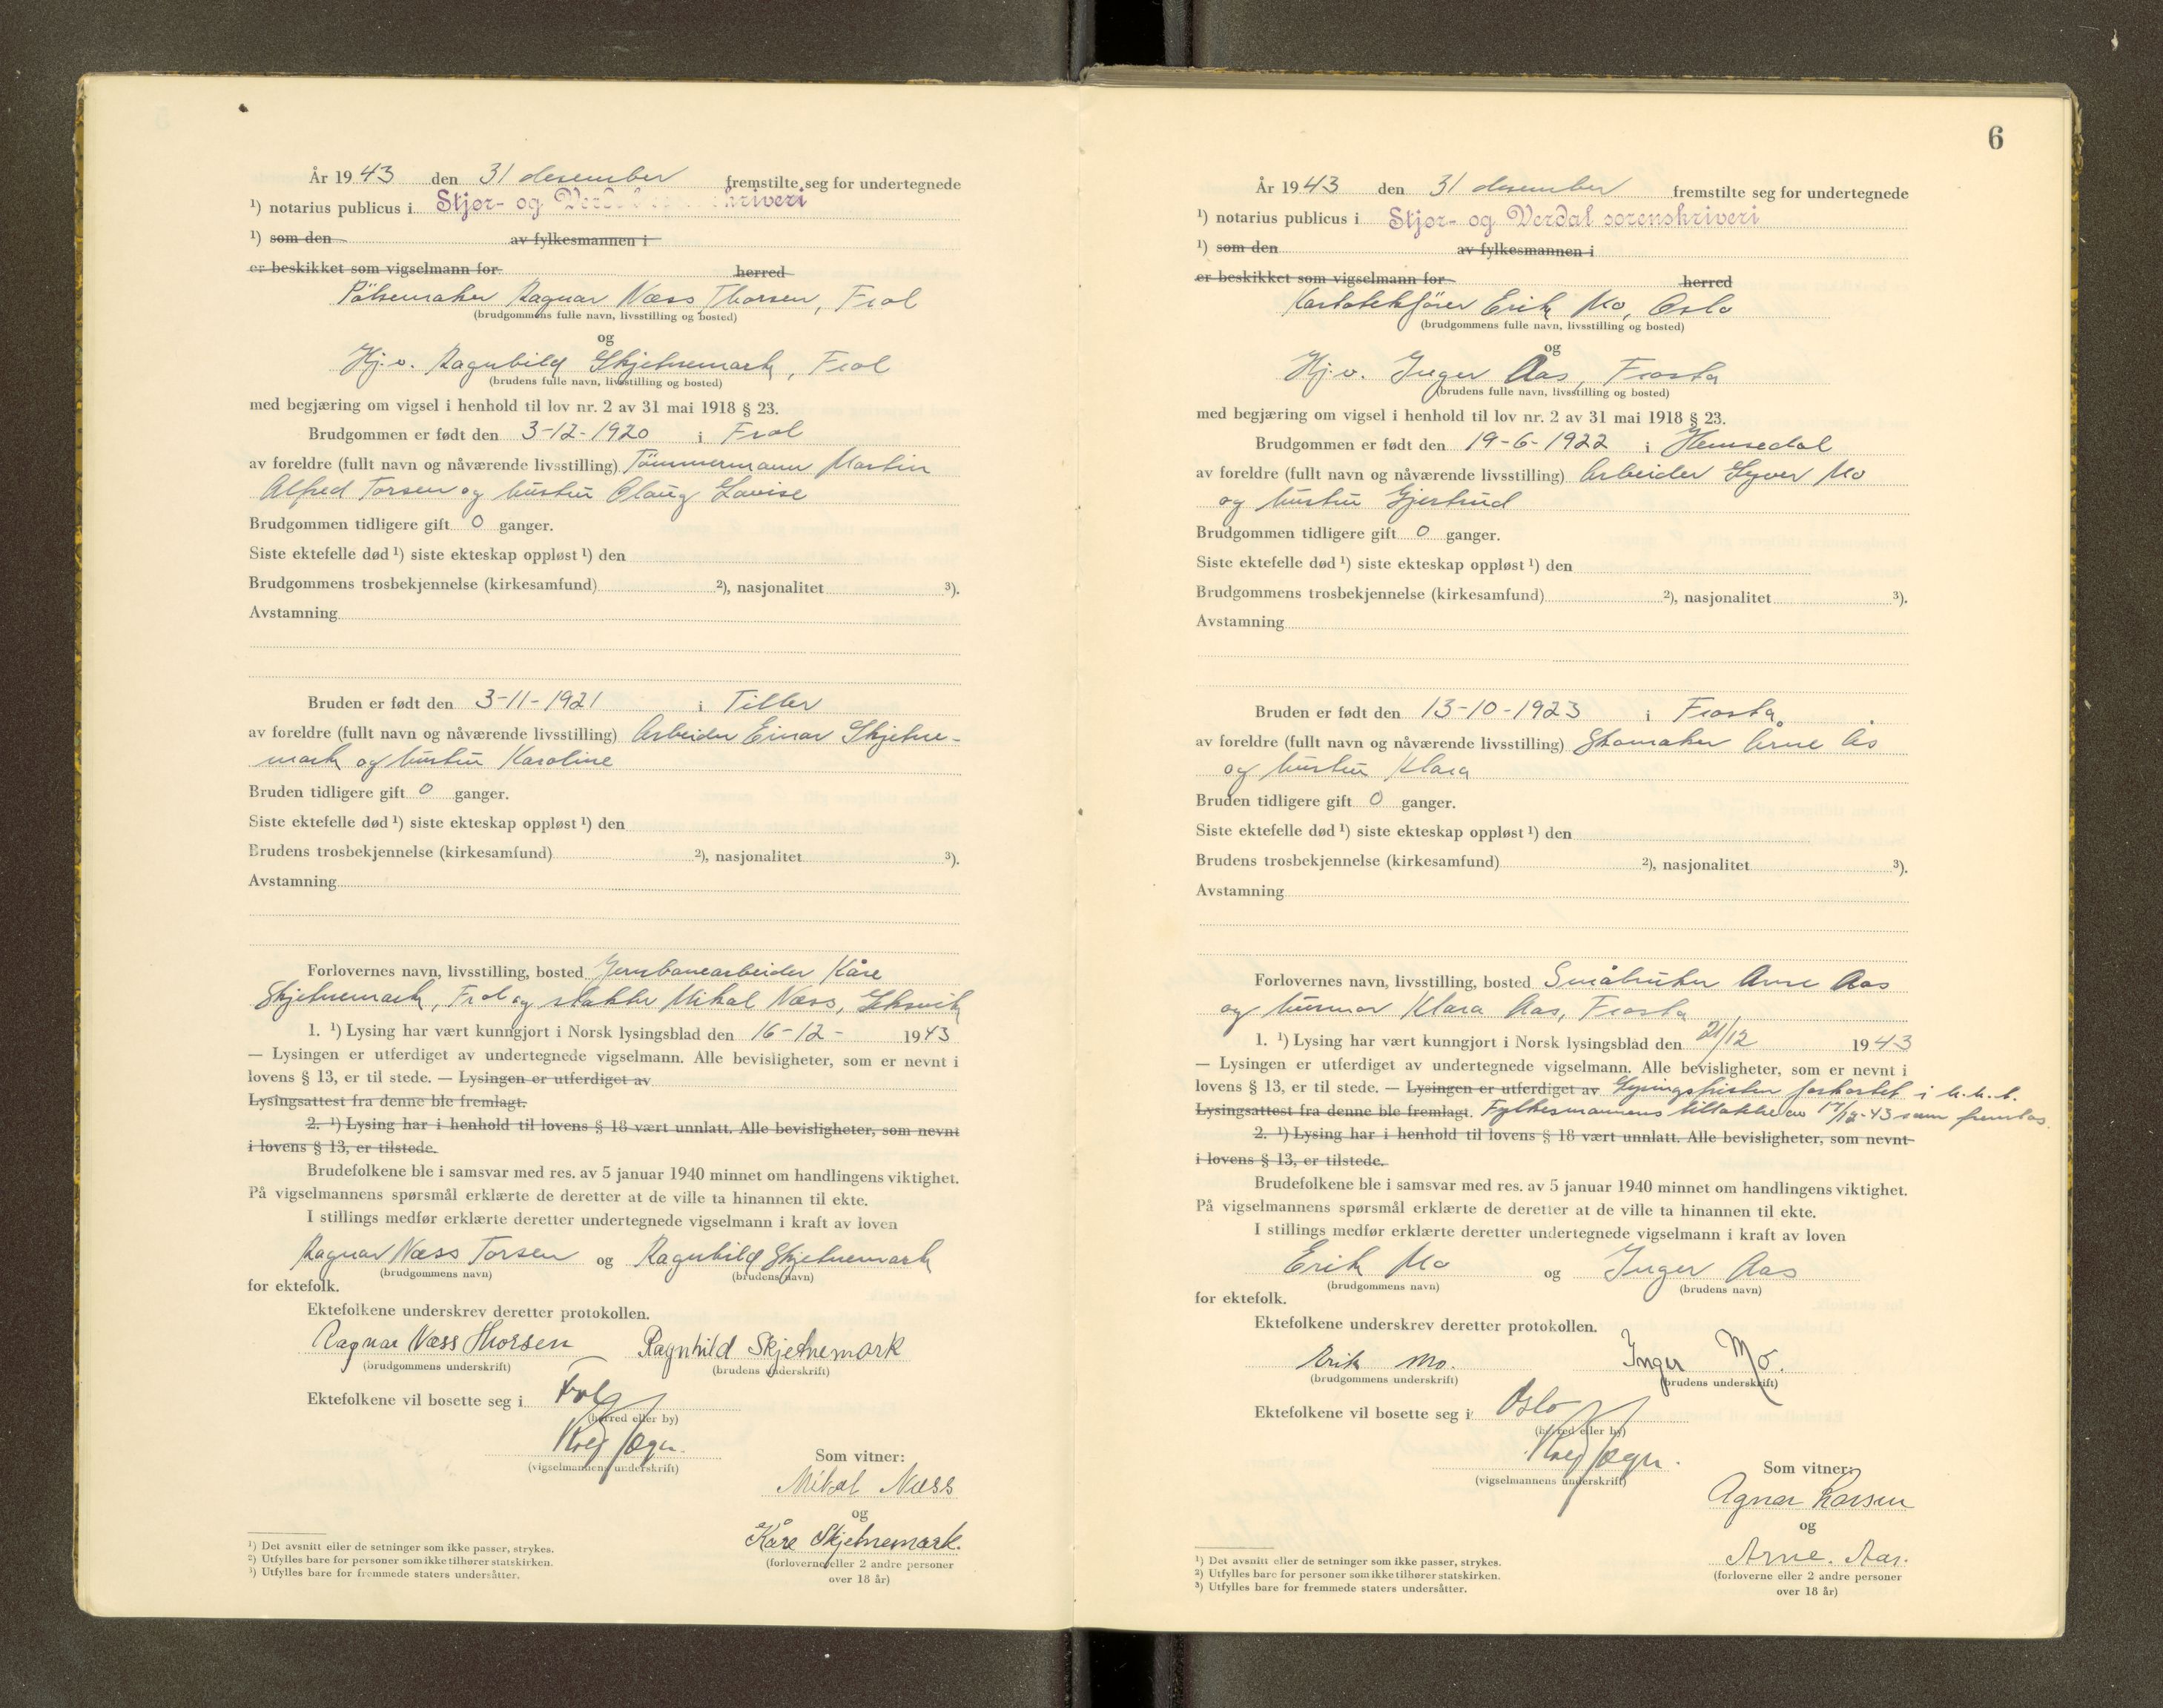 År 1943 den 31 desember fremstilte seg for undertegnede
¹) notarius publicus i Stjør- og Verdal sorenskriveri
¹) som den av fylkesmannen i
er beskikket som vigselmann for herred
Pölsemaker Ragnar Næss Thorsen, Frol
(brudgommens fulle navn, livsstilling og bosted)
og
Hj.v. Ragnhild Skjetnemark, Frol
(brudens fulle navn, livsstilling og bosted)
med begjæring om vigsel i henhold til lov nr. 2 av 31 mai 1918 § 23.
Brudgommen er født den 3-12-1920 i Frol
av foreldre (fullt navn og nåværende livsstilling) Tömmermann Martin
Alfred Torsen og hustru Olaug Lovise
Brudgommen tidligere gift 0 ganger.
Siste ektefelle død ¹) siste ekteskap oppløst ¹) den
Brudgommens trosbekjennelse (kirkesamfund) ²), nasjonalitet ³).
Avstamning
Bruden er født den 3-11-1921 i Tiller
av foreldre (fullt navn og nåværende livsstilling) Arbeider Einar Skjetne-
mark og hustru Karoline
Bruden tidligere gift 0 ganger.
Siste ektefelle død ¹) siste ekteskap oppløst ¹) den
Brudens trosbekjennelse (kirkesamfund) ²), nasjonalitet ³).
Avstamning
Forlovernes navn, livsstilling, bosted Jernbanearbeider Kåre
Skjetnemark, Frol og slakter Mikal Næss, Leksvik
1. ¹) Lysing har vært kunngjort i Norsk lysingsblad den 16-12- 1943
— Lysingen er utferdiget av undertegnede vigselmann. Alle bevisligheter, som er nevnt i
lovens § 13, er til stede. — Lysingen er utferdiget av
Lysingsattest fra denne ble fremlagt.
2. ¹) Lysing har i henhold til lovens § 18 vært unnlatt. Alle bevisligheter, som nevnt
i lovens § 13, er tilstede.
Brudefolkene ble i samsvar med res. av 5 januar 1940 minnet om handlingens viktighet.
På vigselmannens spørsmål erklærte de deretter at de ville ta hinannen til ekte.
I stillings medfør erklærte deretter undertegnede vigselmann i kraft av loven
Ragnar Næss Torsen og Ragnhild Skjetnemark
(brudgommens navn) (brudens navn)
for ektefolk.
Ektefolkene underskrev deretter protokollen.
Ragnar Næss Thorsen Ragnhild Skjetnemark
(brudgommens underskrift) (brudens underskrift)
Ektefolkene vil bosette seg i Frol
(herred eller by)
(vigselmannens underskrift)
Som vitner:
Mikal Næss
og
Kåre Skjetnemark.
(forloverne eller 2 andre personer
over 18 år)
¹) Det avsnitt eller de setninger som ikke passer, strykes.
²) Utfylles bare for personer som ikke tilhører statskirken.
³) Utfylles bare for fremmede staters undersåtter.
6
År 1943 den 31 desember fremstilte seg for undertegnede
¹) notarius publicus i Stjør- og Verdal sorenskriveri
¹) som den av fylkesmannen i
er beskikket som vigselmann for herred
Kartotekfører Erik Mo, Oslo
(brudgommens fulle navn, livsstilling og bosted)
og
Hj.v. Inger Aas, Frosta
(brudens fulle navn, livsstilling og bosted)
med begjæring om vigsel i henhold til lov nr. 2 av 31 mai 1918 § 23.
Brudgommen er født den 19-6-1922 i Hemsedal
av foreldre (fullt navn og nåværende livsstilling) Arbeider Syver Mo
og hustru Gjertrud
Brudgommen tidligere gift 0 ganger.
Siste ektefelle død ¹) siste ekteskap oppløst ¹) den
Brudgommens trosbekjennelse (kirkesamfund) ²), nasjonalitet ³).
Avstamning
Bruden er født den 13-10-1923 i Frosta
av foreldre (fullt navn og nåværende livsstilling) Skomaker Arne Ås
og hustru Klara
Bruden tidligere gift 0 ganger.
Siste ektefelle død ¹) siste ekteskap oppløst ¹) den
Brudens trosbekjennelse (kirkesamfund) ²), nasjonalitet ³).
Avstamning
Forlovernes navn, livsstilling, bosted Småbruker Arne Aas
og husmor Klara Aas, Frosta
1. ¹) Lysing har vært kunngjort i Norsk lysingsblad den 21/12 1943
— Lysingen er utferdiget av undertegnede vigselmann. Alle bevisligheter, som er nevnt i
lovens § 13, er til stede. — Lysingen er utferdiget av Lysingsfristen forkortet i h.h.t.
Lysingsattest fra denne ble fremlagt. Fylkesmannens tillatelse av 17/12-43 som fremlas.
2. ¹) Lysing har i henhold til lovens § 18 vært unnlatt. Alle bevisligheter, som nevnt
i lovens § 13, er tilstede.
Brudefolkene ble i samsvar med res. av 5 januar 1940 minnet om handlingens viktighet.
På vigselmannens spørsmål erklærte de deretter at de ville ta hinannen til ekte.
I stillings medfør erklærte deretter undertegnede vigselmann i kraft av loven
Erik Mo og Inger Aas
(brudgommens navn) (brudens navn)
for ektefolk.
Ektefolkene underskrev deretter protokollen.
Erik Mo. Inger Mo.
(brudgommens underskrift) (brudens underskrift)
Ektefolkene vil bosette seg i Oslo
(herred eller by)
(vigselmannens underskrift)
Som vitner:
Agnar Larsen
og
Arne. Aas.
(forloverne eller 2 andre personer
over 18 år)
¹) Det avsnitt eller de setninger som ikke passer, strykes.
²) Utfylles bare for personer som ikke tilhører statskirken.
³) Utfylles bare for fremmede staters undersåtter.